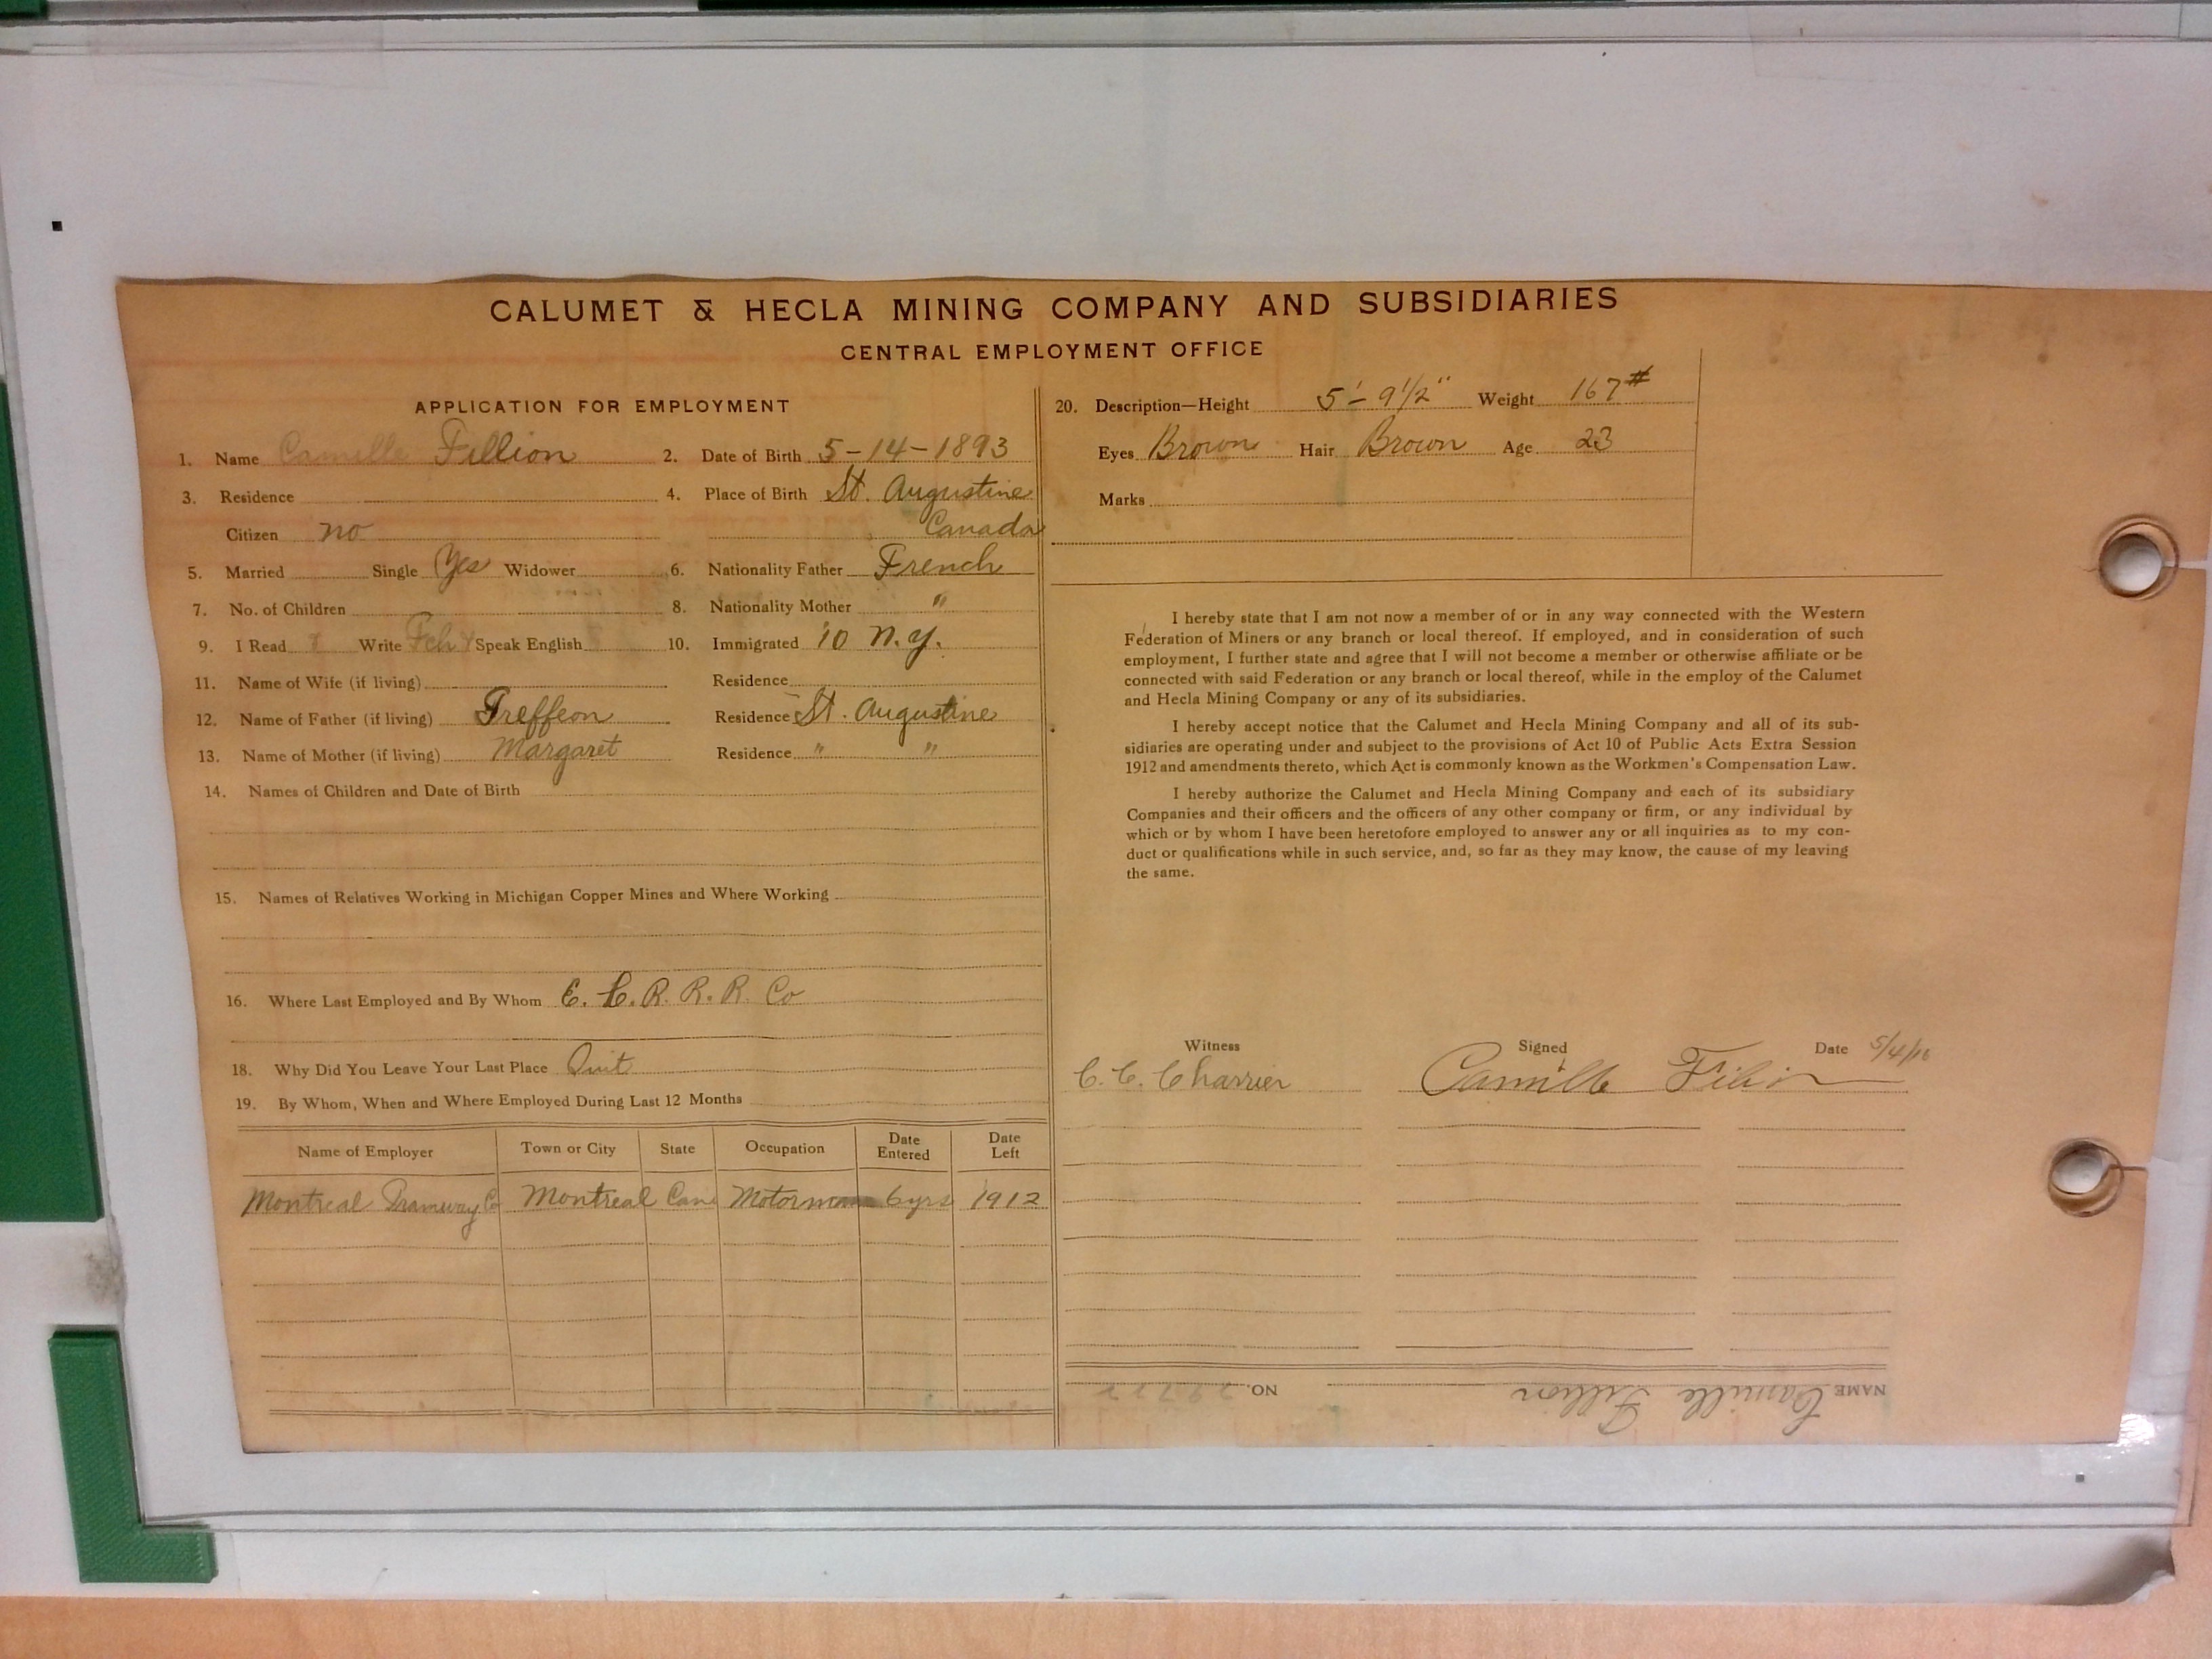 CALUMET & HECLA MINING COMPANY AND SUBSIDIARIES
CENTRAL EMPLOYMENT OFFICE
APPLICATION FOR EMPLOYMENT
1. Name Camille Fillion 2. Date of Birth 5-14-1893
3. Residence 4. Place of Birth St. Augustine
Citizen no Canada
5. Married Single Yes Widower 6. Nationality Father French
7. No. of Children 8. Nationality Mother "
9. I Read Write Fch Speak English 10. Immigrated '10 N.Y.
11. Name of Wife (if living) Residence
12. Name of Father (if living) Treffeon Residence St. Augustine
13. Name of Mother (if living) Margaret Residence " "
14. Names of Children and Date of Birth
15. Names of Relatives Working in Michigan Copper Mines and Where Working
16. Where Last Employed and By Whom E. C. R. R. R. Co
18. Why Did You Leave Your Last Place Quit
19. By Whom, When and Where Employed During Last 12 Months
Name of Employer Town or City State Occupation Date Entered Date Left
Montreal Tramway Co Montreal Can Motorman 6 yrs 1912
20. Description—Height 5'-9 1/2" Weight 167#
Eyes Brown Hair Brown Age 23
Marks
I hereby state that I am not now a member of or in any way connected with the Western
Federation of Miners or any branch or local thereof. If employed, and in consideration of such
employment, I further state and agree that I will not become a member or otherwise affiliate or be
connected with said Federation or any branch or local thereof, while in the employ of the Calumet
and Hecla Mining Company or any of its subsidiaries.
I hereby accept notice that the Calumet and Hecla Mining Company and all of its sub-
sidiaries are operating under and subject to the provisions of Act 10 of Public Acts Extra Session
1912 and amendments thereto, which Act is commonly known as the Workmen's Compensation Law.
I hereby authorize the Calumet and Hecla Mining Company and each of its subsidiary
Companies and their officers and the officers of any other company or firm, or any individual by
which or by whom I have been heretofore employed to answer any or all inquiries as to my con-
duct or qualifications while in such service, and, so far as they may know, the cause of my leaving
the same.
Witness Signed Date 5/4/16
C. C. Charrier Camille Filion
NAME Camille Fillion NO.